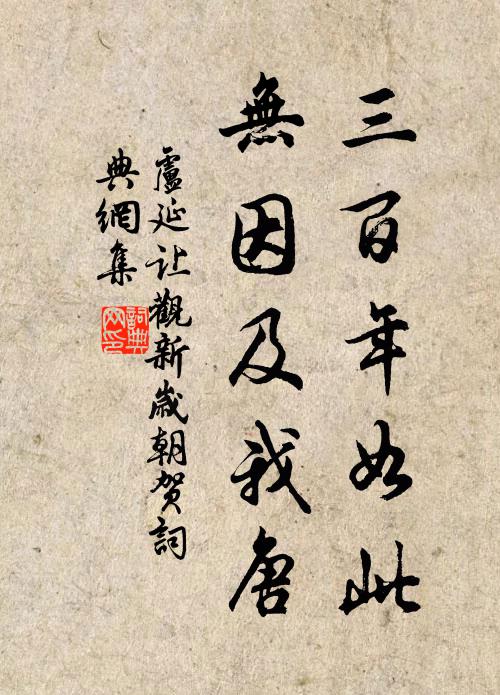 三百年如此
無因及我唐
盧延让觀新歲朝贺詞
典網集
詞典
网印